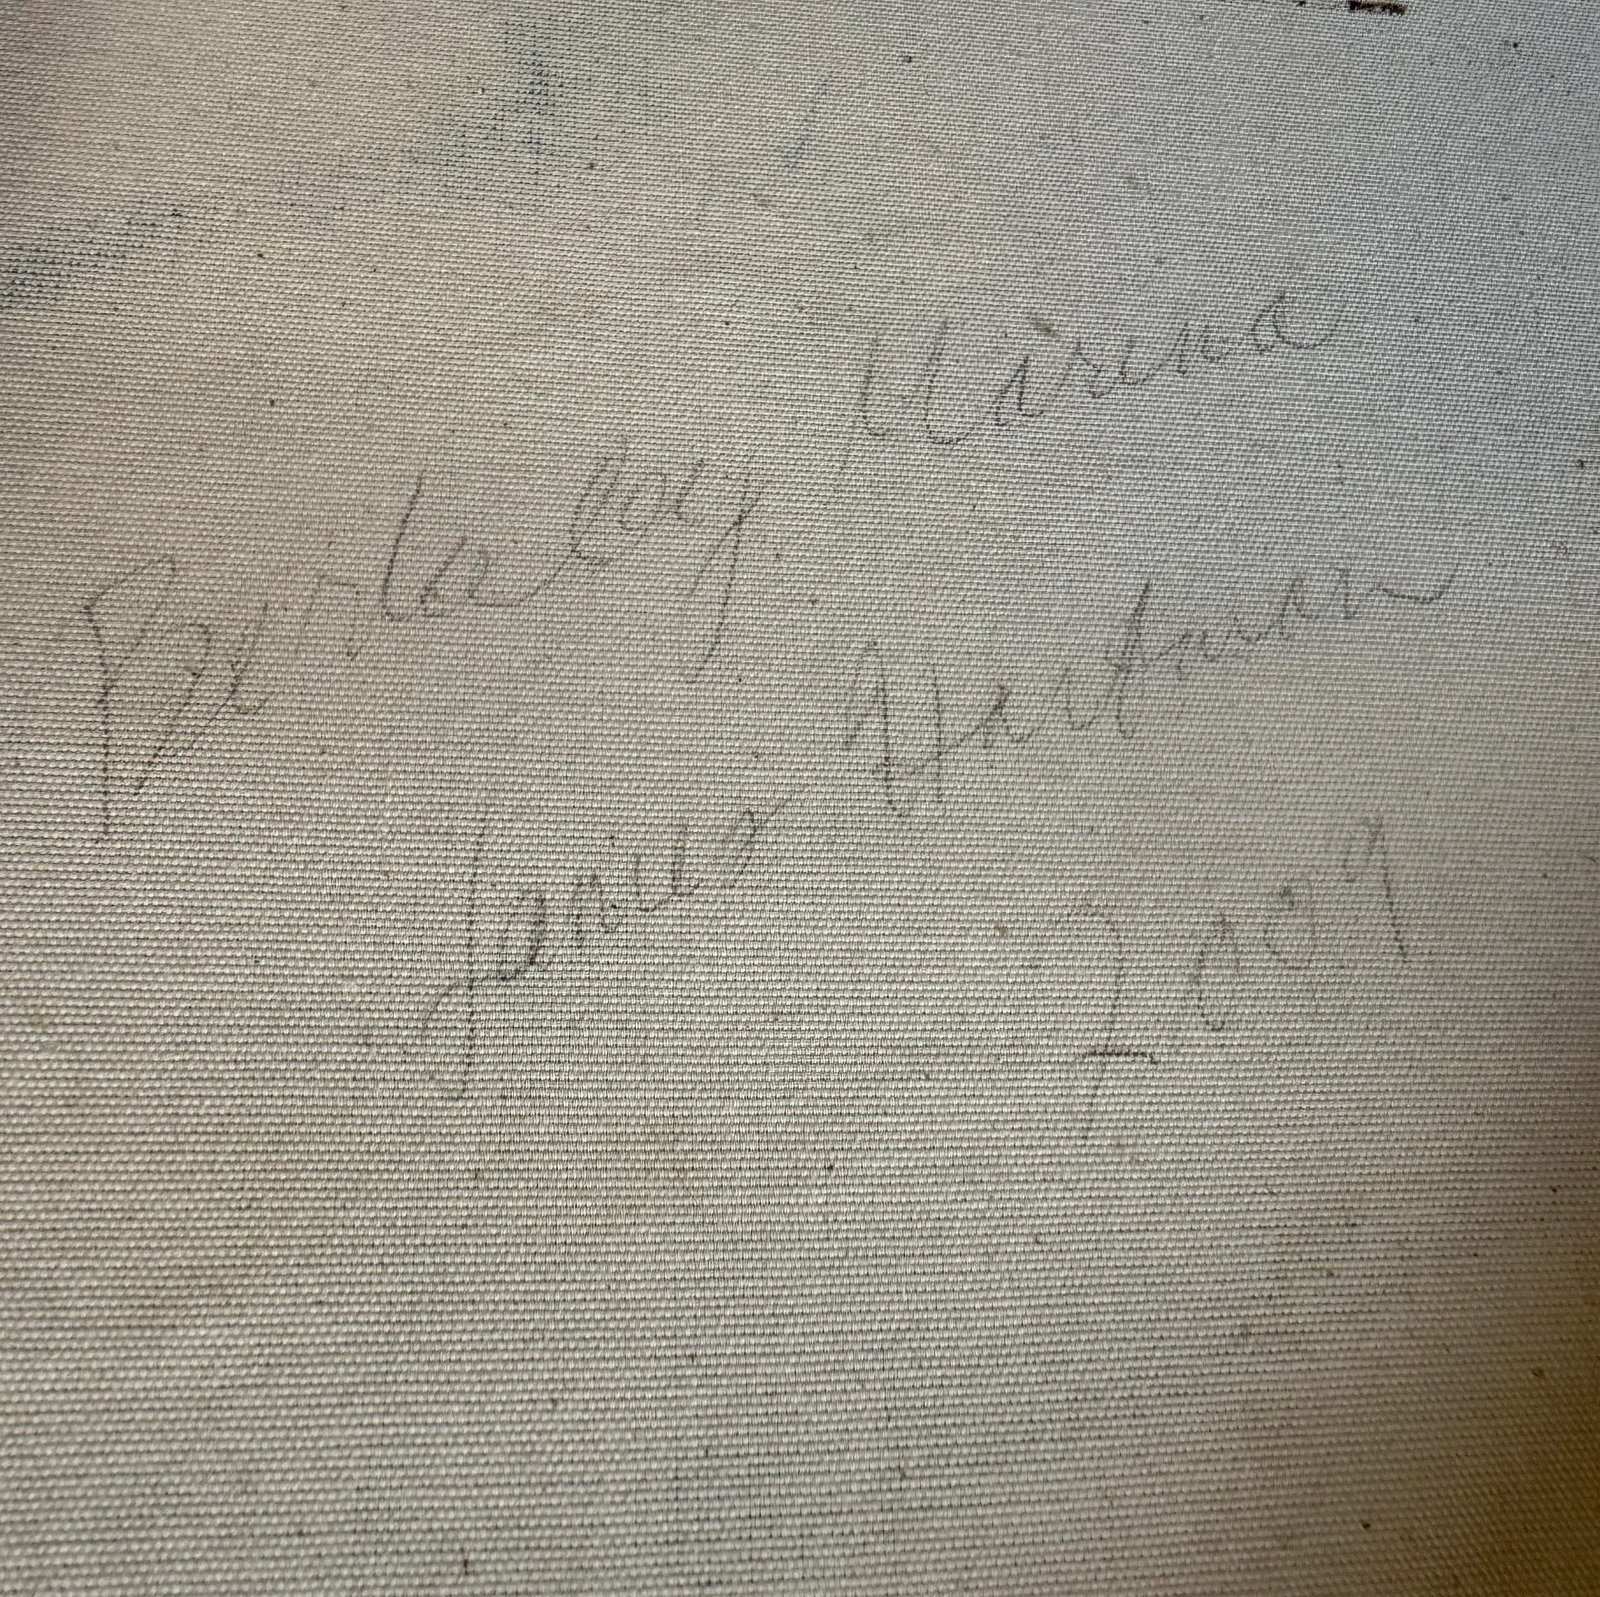 Berkeley Marina
James Hartman
2009